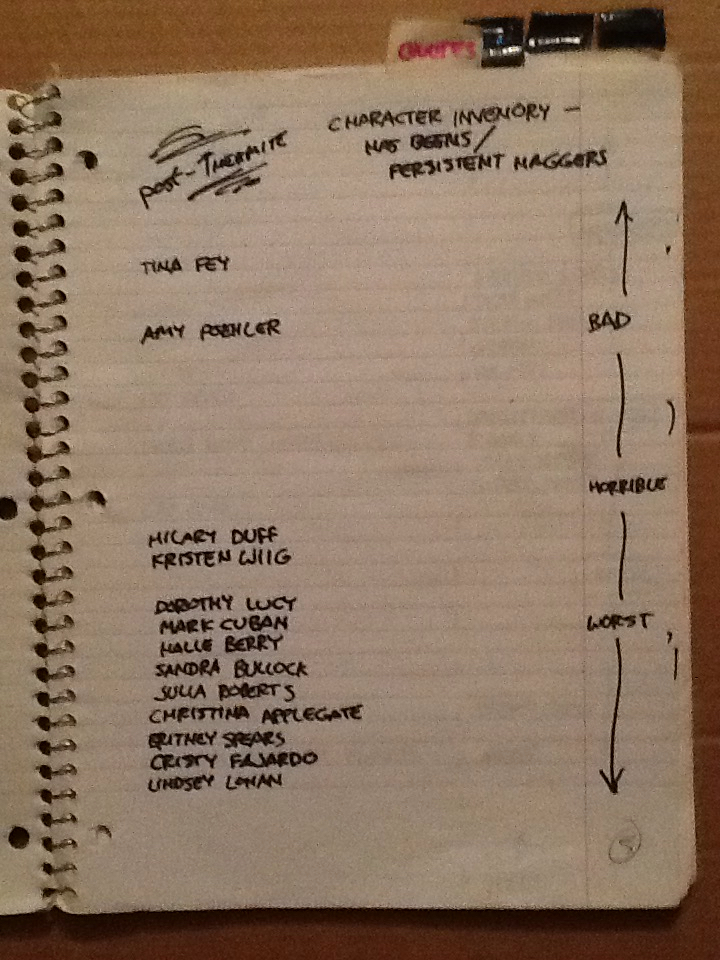 QUOTES
post-THERMITE
CHARACTER INVENORY -
HAS BEENS/
PERSISTENT NAGGERS
TINA FEY
AMY POEHLER
BAD
HORRIBLE
HILARY DUFF
KRISTEN WIIG
DOROTHY LUCY
MARK CUBAN
WORST
HALLE BERRY
SANDRA BULLOCK
JULIA ROBERTS
CHRISTINA APPLEGATE
BRITNEY SPEARS
CRISTY FAJARDO
LINDSEY LOHAN
5